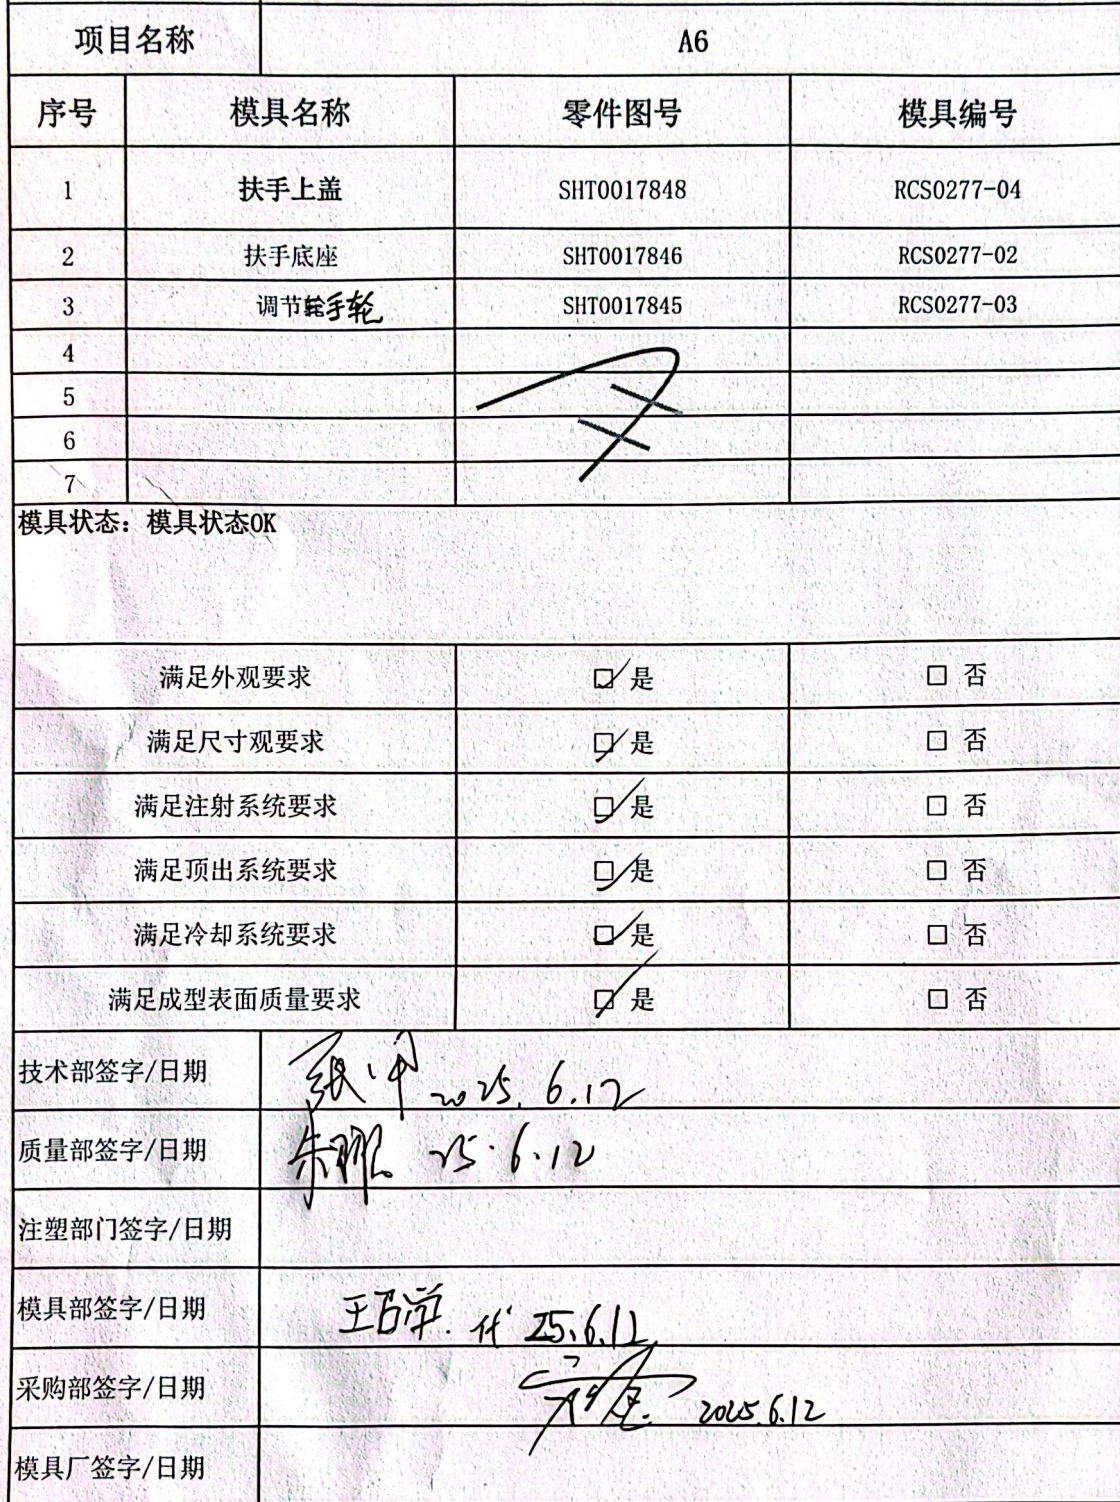 项目名称 A6
序号 模具名称 零件图号 模具编号
1 扶手上盖 SHT0017848 RCS0277-04
2 扶手底座 SHT0017846 RCS0277-02
3 调节手轮 SHT0017845 RCS0277-03
4
5
6
7
模具状态：模具状态OK
满足外观要求 ☑ 是 □ 否
满足尺寸观要求 ☑ 是 □ 否
满足注射系统要求 ☑ 是 □ 否
满足顶出系统要求 ☑ 是 □ 否
满足冷却系统要求 ☑ 是 □ 否
满足成型表面质量要求 ☑ 是 □ 否
技术部签字/日期 2025.6.12
质量部签字/日期 25.6.12
注塑部门签字/日期
模具部签字/日期 代 25.6.12
采购部签字/日期 2025.6.12
模具厂签字/日期